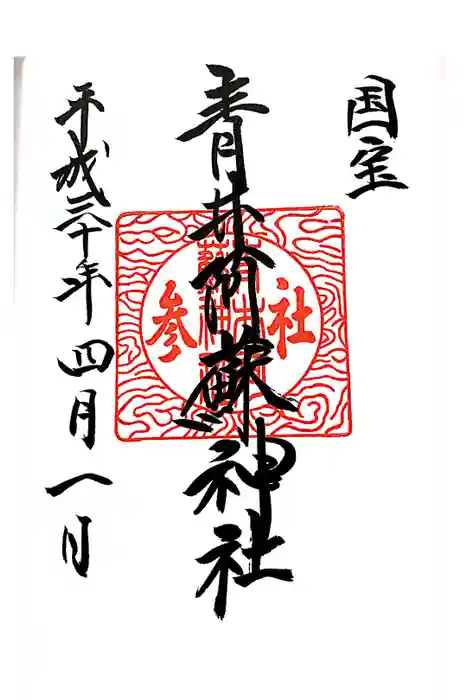 国宝
青井阿蘇神社
社参
平成三十年四月一日